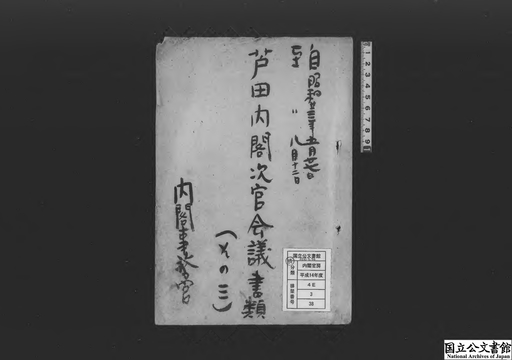 自昭和廿三年五月廿七日
至 〃 八月十二日
芦田内閣次官会議書類
(その三)
内閣事務官
国立公文書館
分類
内閣官房
平成16年度
排架番号
4 E
3
36
1 2 3 4 5 6 7 8 9
国立公文書館
National Archives of Japan